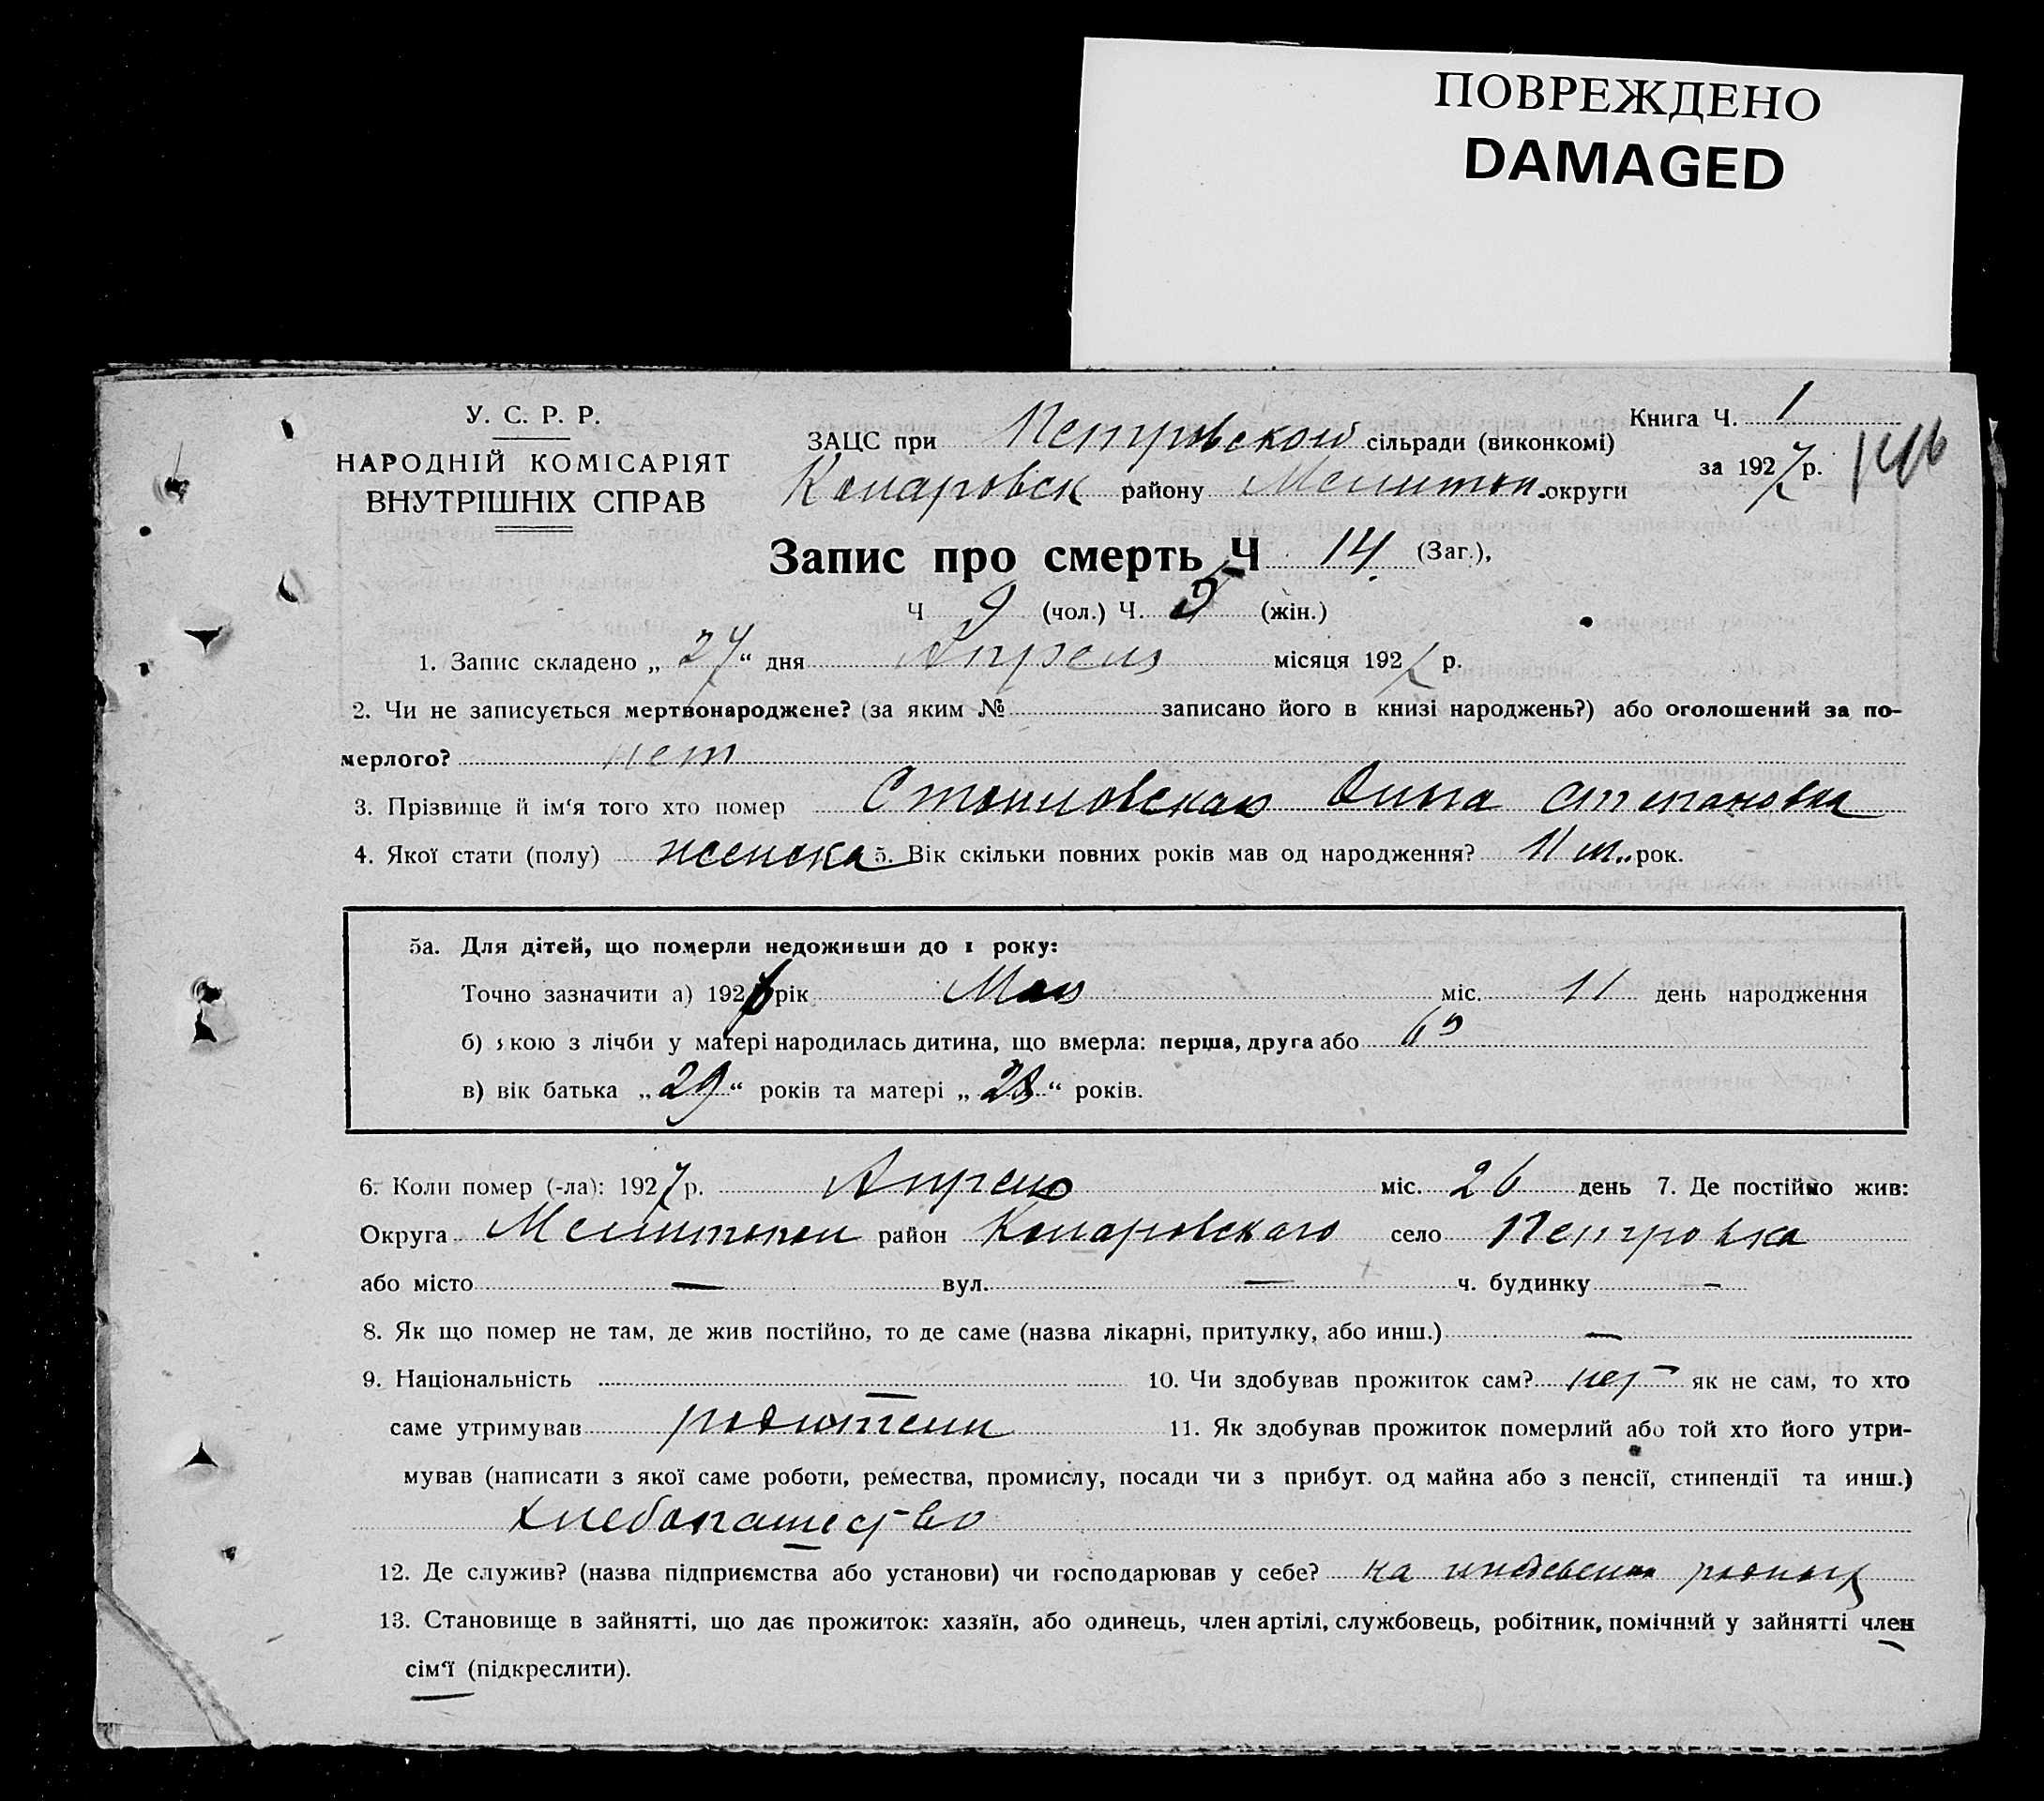 ПОВРЕЖДЕНО
DAMAGED
У. С. Р. Р.
НАРОДНІЙ КОМІСАРІЯТ
ВНУТРІШНІХ СПРАВ
ЗАЦС при Петровской сільради (виконкомі)
району округи
Книга Ч. 1
за 1927 р.
Запис про смерть Ч 14 (Заг.),
Ч 9 (чол.) Ч. 5 (жін.)
1. Запис складено „27“ дня Апреля місяця 1927 р.
2. Чи не записується мертвонароджене? (за яким № записано його в книзі народжень?) або оголошений за по-
мерлого? нет
3. Прізвище й ім‘я того хто помер Степановна
4. Якої стати (полу) женска 5. Вік скільки повних років мав од народження? 11 м. рок.
5а. Для дітей, що померли недоживши до 1 року:
Точно зазначити а) 1926 рік Мая міс. 11 день народження
б) якою з лічби у матері народилась дитина, що вмерла: перша, друга або
в) вік батька „29“ років та матері „28“ років.
6. Коли помер (-ла): 1927 р. Апреля міс. 26 день 7. Де постійно жив:
Округа район село Петровка
або місто — вул. — ч. будинку —
8. Як що помер не там, де жив постійно, то де саме (назва лікарні, притулку, або инш.) —
9. Національність — 10. Чи здобував прожиток сам? нет як не сам, то хто
саме утримував родители 11. Як здобував прожиток померлий або той хто його утри-
мував (написати з якої саме роботи, ремества, промислу, посади чи з прибут. од майна або з пенсії, стипендії та инш.)
хлебопашество
12. Де служив? (назва підприємства або установи) чи господарював у себе? на
13. Становище в зайнятті, що дає прожиток: хазяїн, або одинець, член артілі, службовець, робітник, помічний у зайнятті член
сім‘ї (підкреслити).